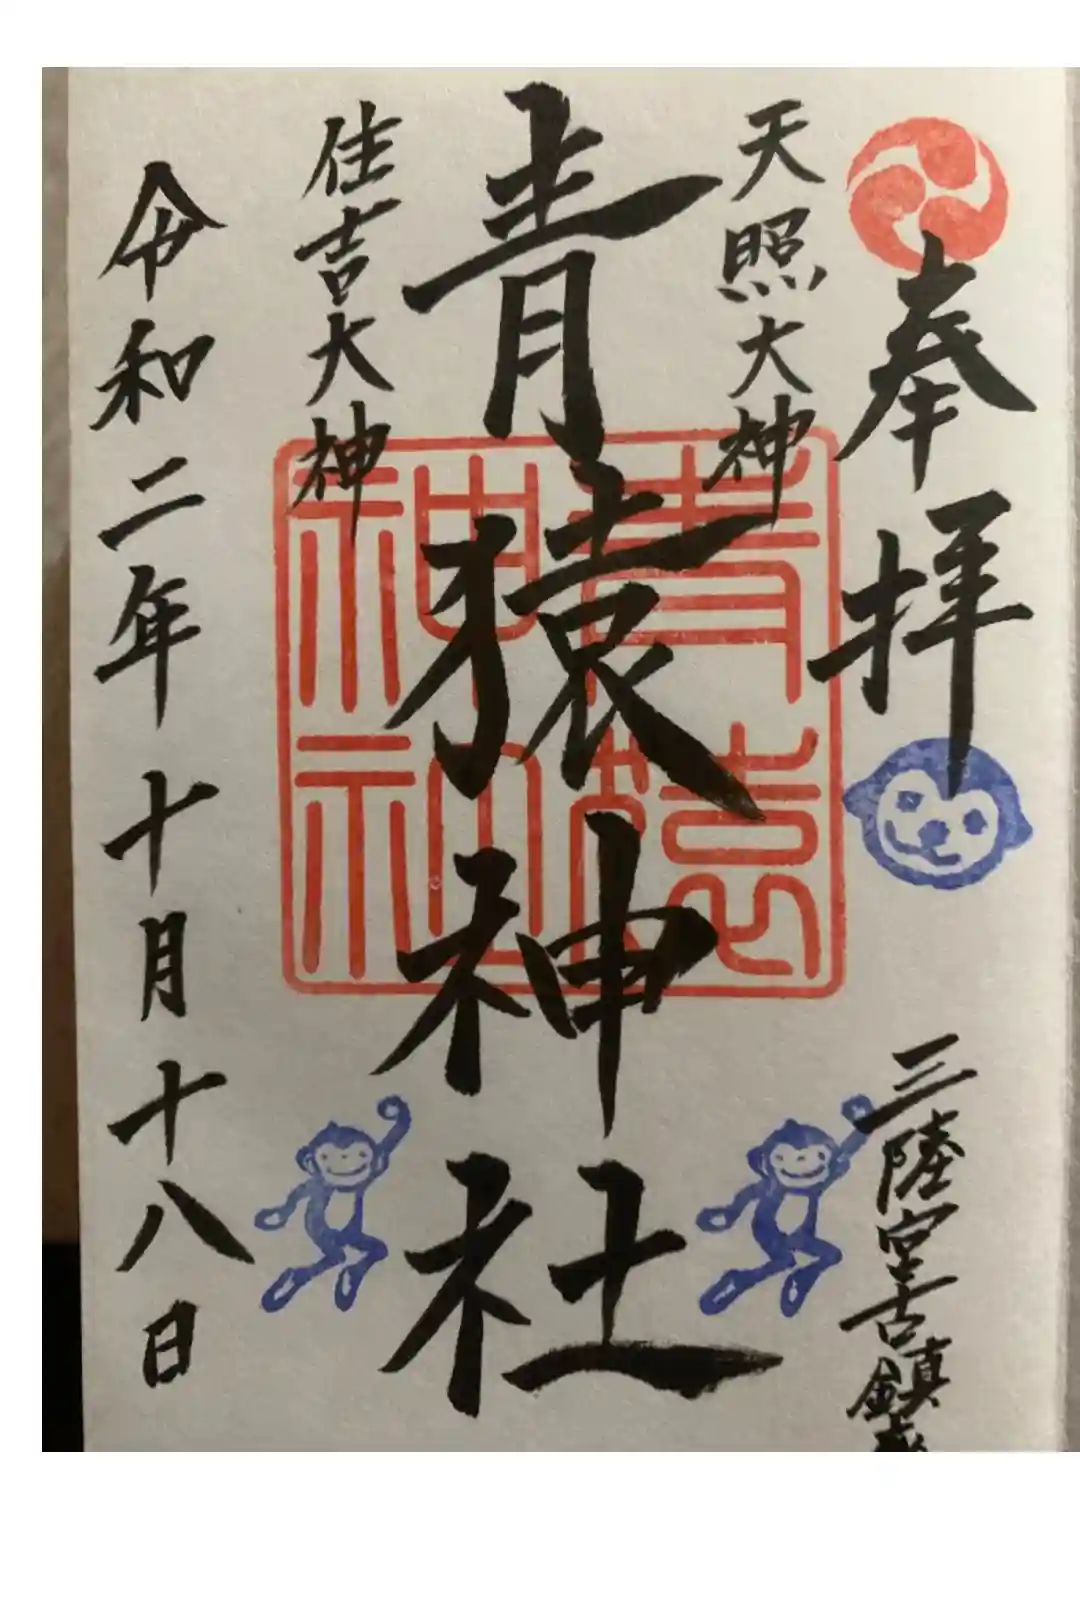 奉拝
三陸宮古鎮
天照大神
青猿神社
住吉大神
令和二年十月十八日
青猿
神社